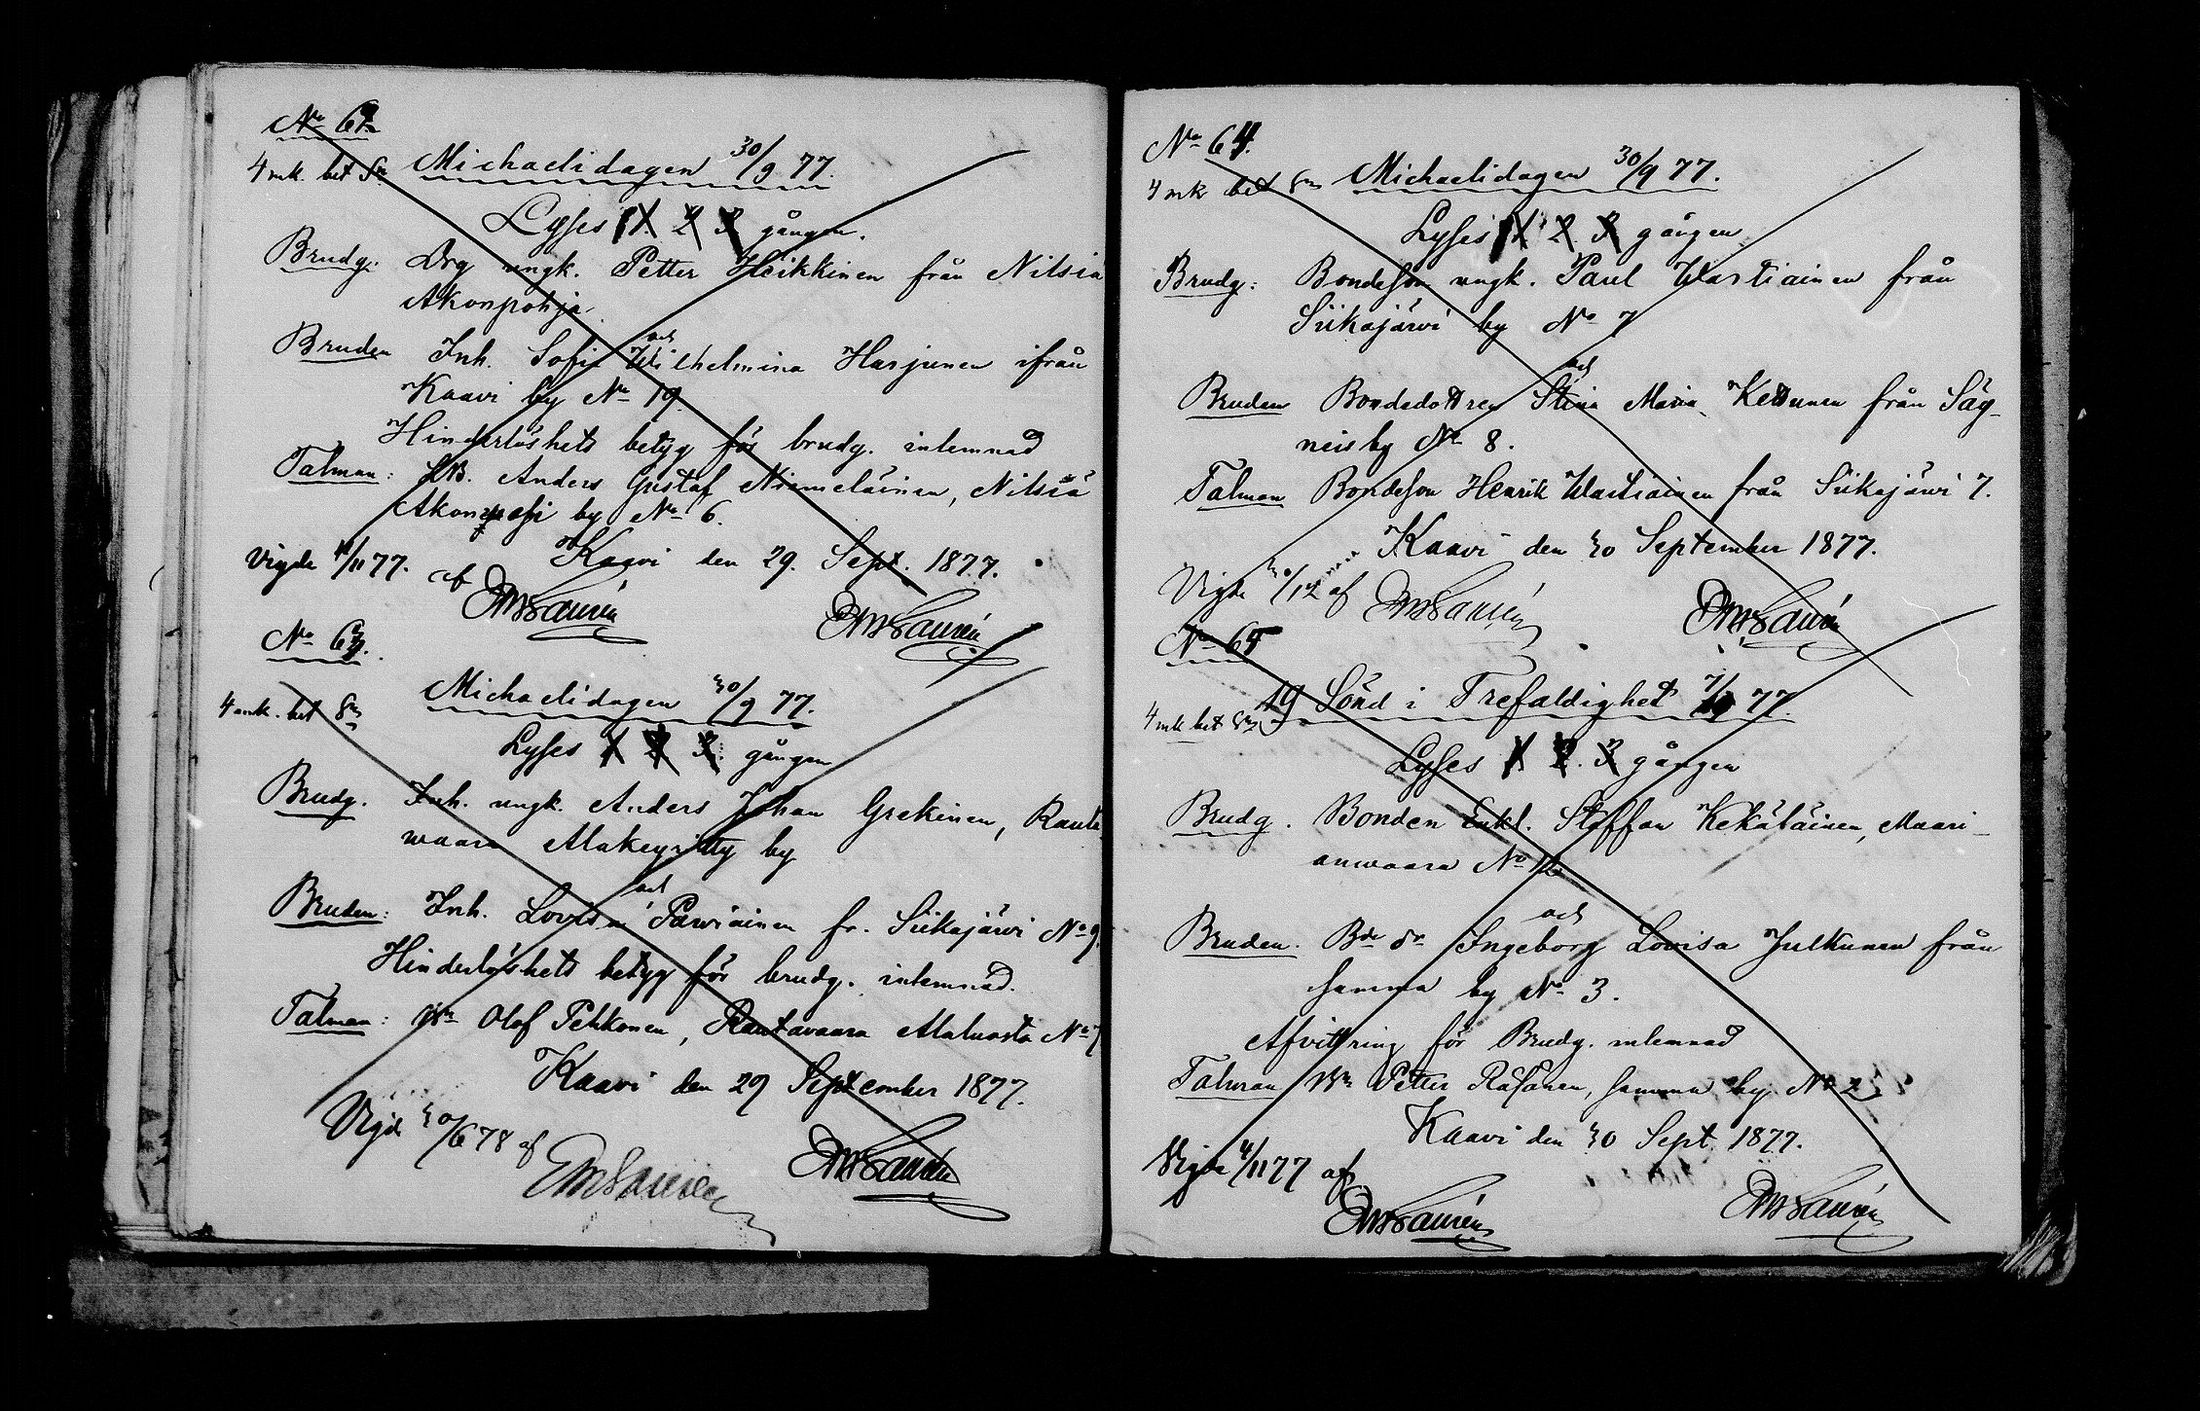 No 62
4 mk. bet Sn Michaelidagen 30/9 77.
Lyses 1. 2 3 gången.
Brudg: Drg ungk. Petter Heikkinen från Nilsiä
Akonpohja
och
Bruden Inh. Sofia Wilhelmina Harjunen ifrån
Kaavi by No 19.
Hinderlöshets betyg för brudg. inlemnad
Talman: Anders Gustaf Niemeläinen, Nilsiä
by No 6.
Kaavi den 29. Sept. 1877.
Vigde 4/11 77. af EMSaurén
EMSaurén
No 63.
Michaelidagen 30/9 77.
4 mk. bet Sn
Lyses 1 2 3. gången
Brudg. Inh. ungk. Anders Johan Grekinen, Rauta
waara Alakeyritty by
och
Bruden: Inh. Lovisa Parviainen fr. Siikajärvi No 9.
Hinderlöshets betyg för brudg. inlemnad.
Talman: Olof Pehkonen, Rautavaara No 7
Kaavi den 29 September 1877.
Vigde 30/6 78 af
EMSaurén
EMSaurén
No 64.
4 mk bet Sn Michaelidagen 30/9 77.
Lyses 1. 2. 3 gången
Brudg: Bondeson ungk. Paul Wartiainen från
Siikajärvi by No 7
och
Bruden Bondedottren Stina Maria Kettunen från Säy-
neis by No 8.
Talman Bondeson Henrik Wartiainen från Siikajärvi 7.
Kaavi den 30 September 1877.
Vigde 30/12 af EMSaurén
EMSaurén
No 65
19 Sönd i Trefaldighet 7/10 77.
4 mk bet Sn
Lyses 1. 2. 3 gången
Brudg. Bonden Enkl. Staffan Kekäläinen, Maari-
anwaara No 12
och
Bruden. Bde dr Ingeborg Lovisa Julkunen från
samma by No 3.
Afvittring för Brudg. inlemnad
Talman Petter Räsänen, samma by No 2
Kaavi den 30 Sept 1877.
Vigde 4/11 77 af
EMSaurén
EMSaurén